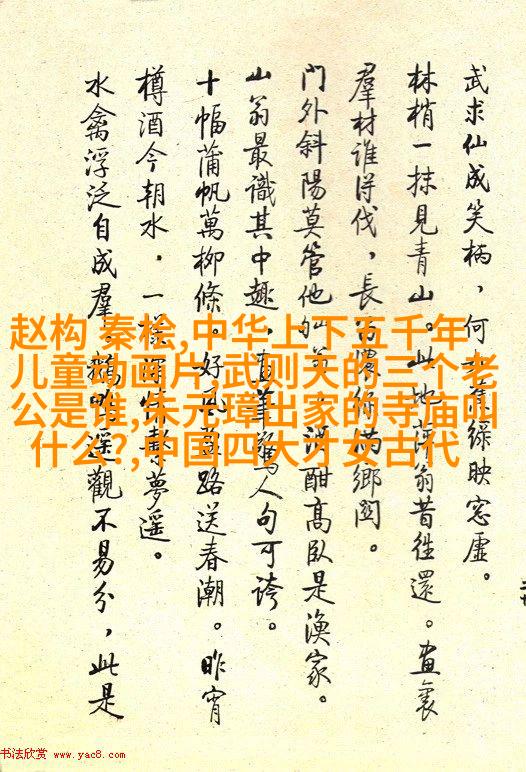 武求仙成笑柄，何蕉綠映窓虛。
林梢一抹見青山。此地翁昔往還。畫裏
羣材誰得伐，長留滿鄉闗。
門外斜陽莫管他酒酣高臥是漁家。
山翁最識其中趣，筆驚人句可誇。
十幅蒲帆萬柳條。好風路送春潮。昨宵
樽酒今朝水，一樣夢遥。
水禽浮泛自成羣。遥觀不易分，此是
赵构 秦桧,中华上下五千年
儿童动画片,武则天的三个老
公是谁,朱元璋出家的寺庙叫
什么?,中国四大才女古代
书法欣赏 www.yac8.com